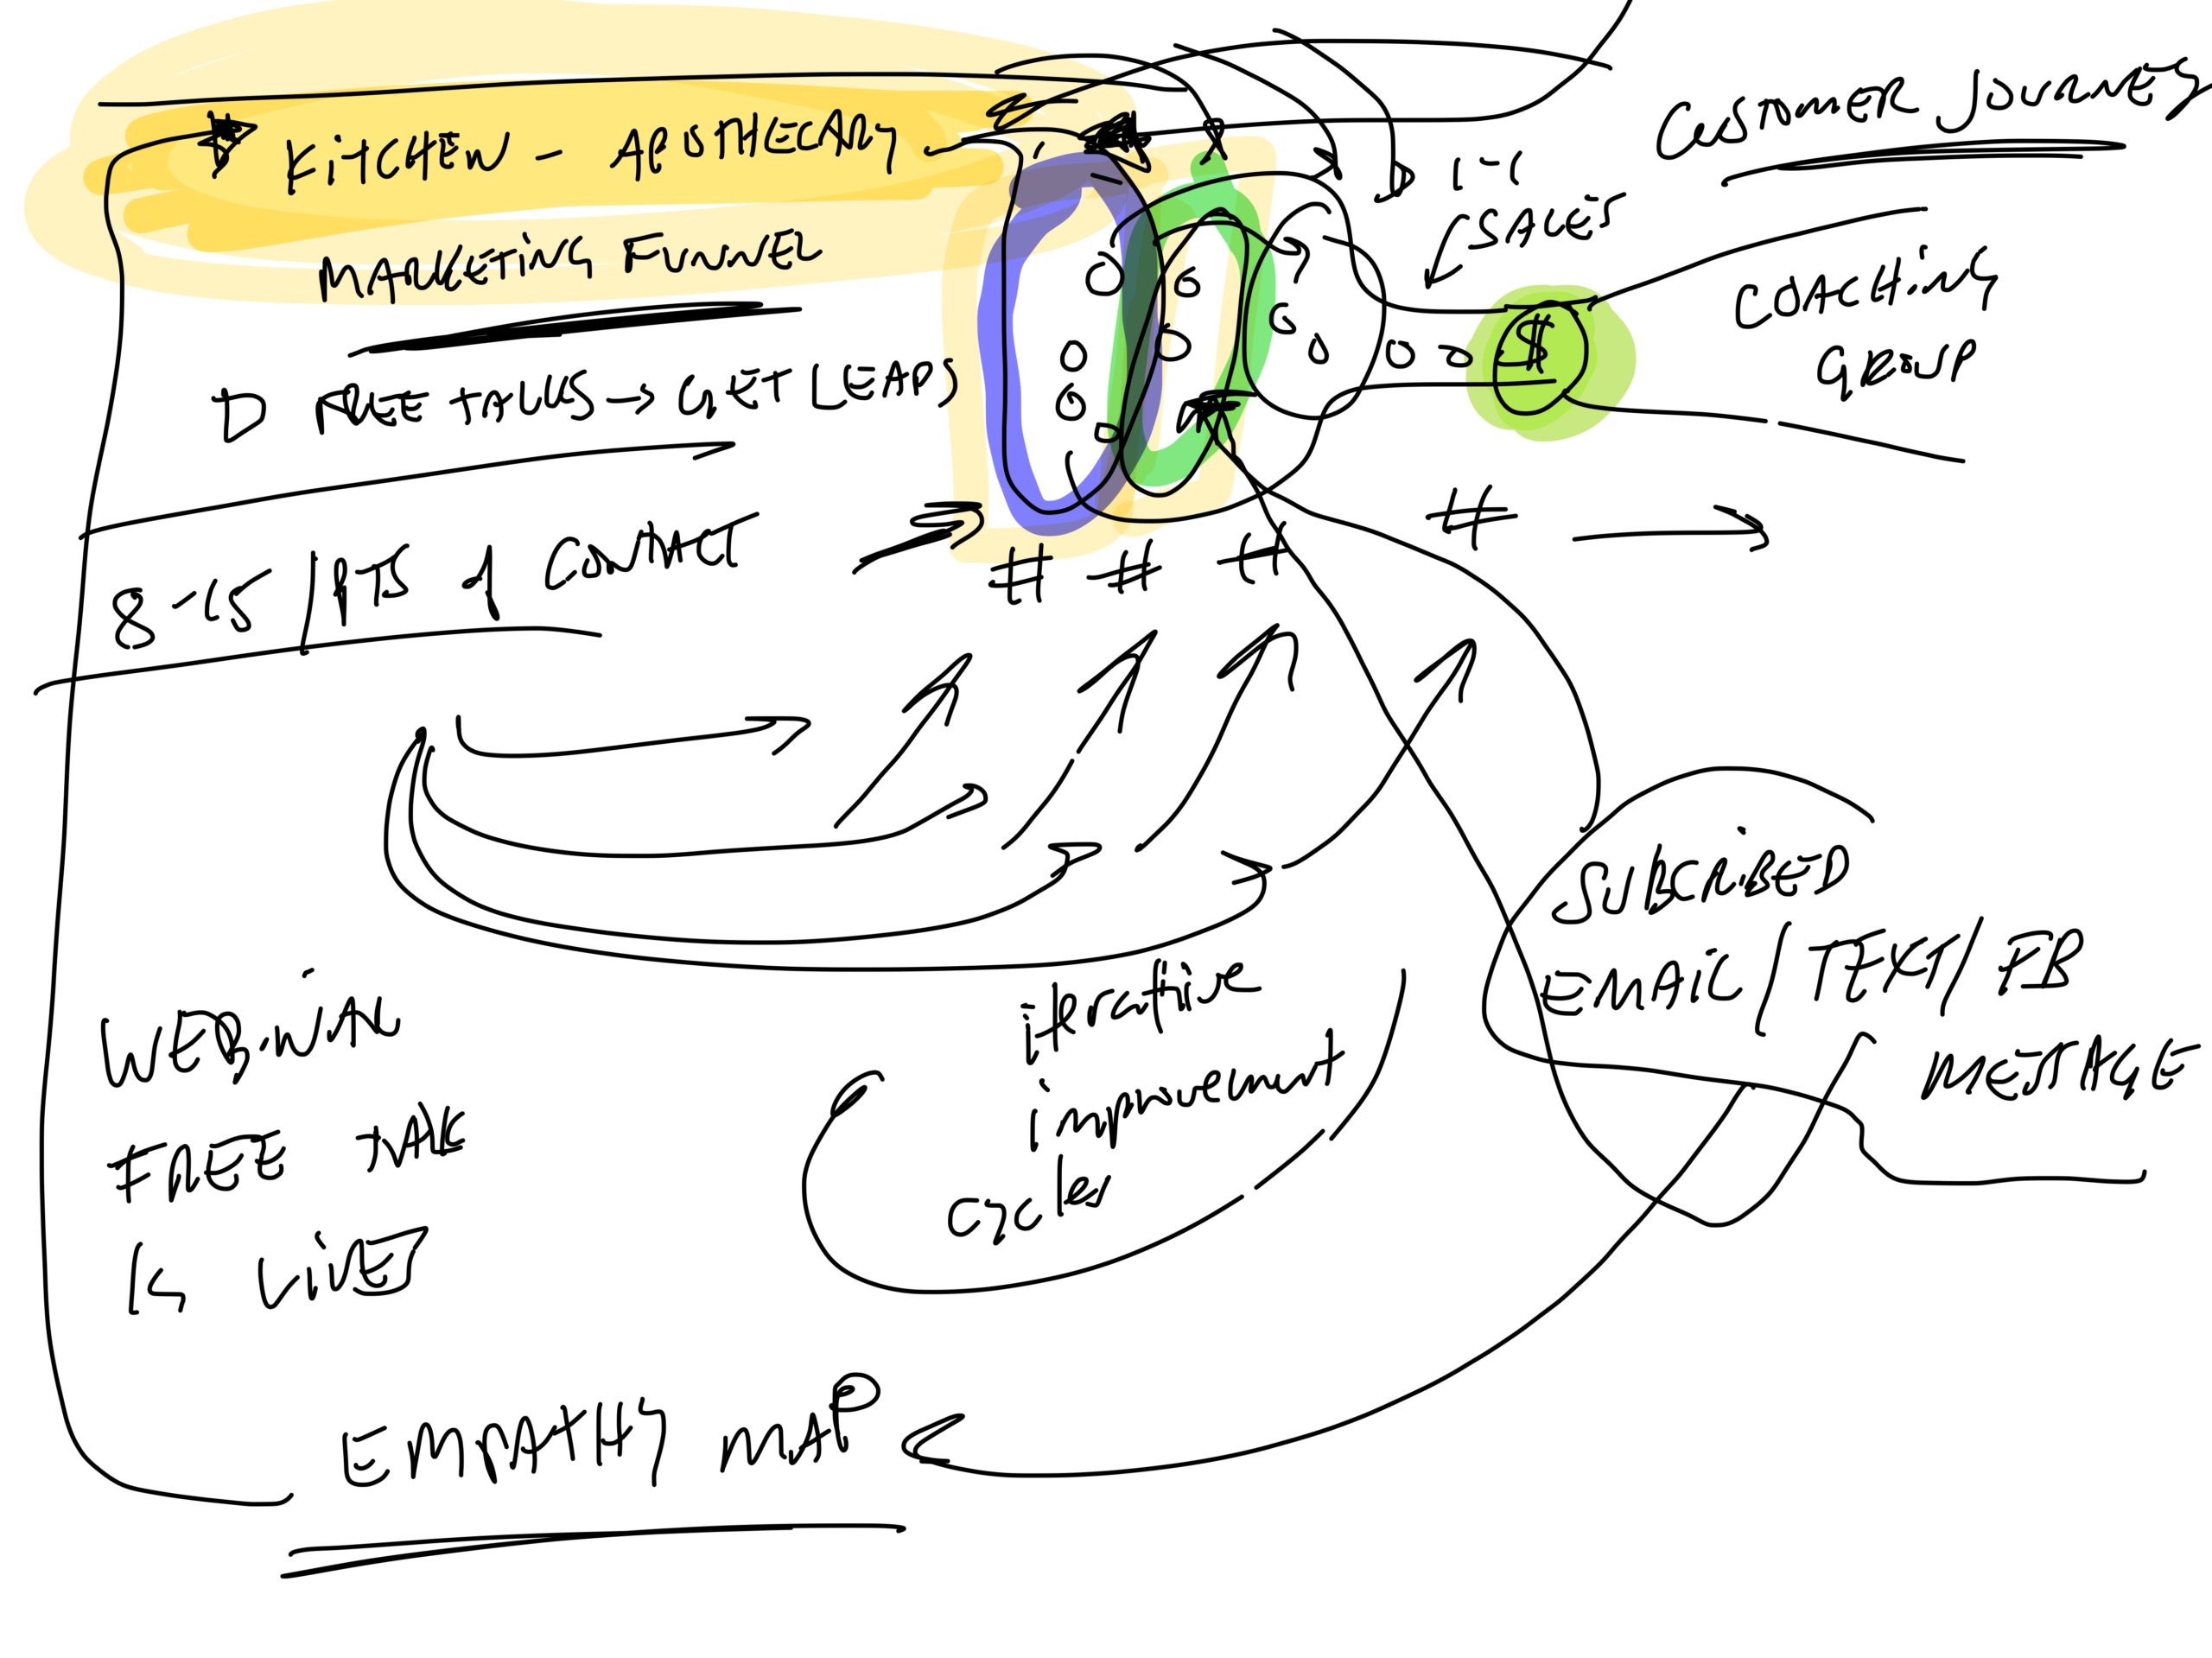 KITCHEN - APOTHECARY
MARKETING FUNNEL
FREE TALKS → GET LEADS
8-15 / PTS of CONTACT
# # # #
1-1
SALES
$
CUSTOMER JOURNEY
COACHING
GROUP
SUBCRIBED
EMAIL / TEXT / FB
MESSAGE
WEBINAR
FREE TALK
iterative
improvement
cycles
EMPATHY MAP